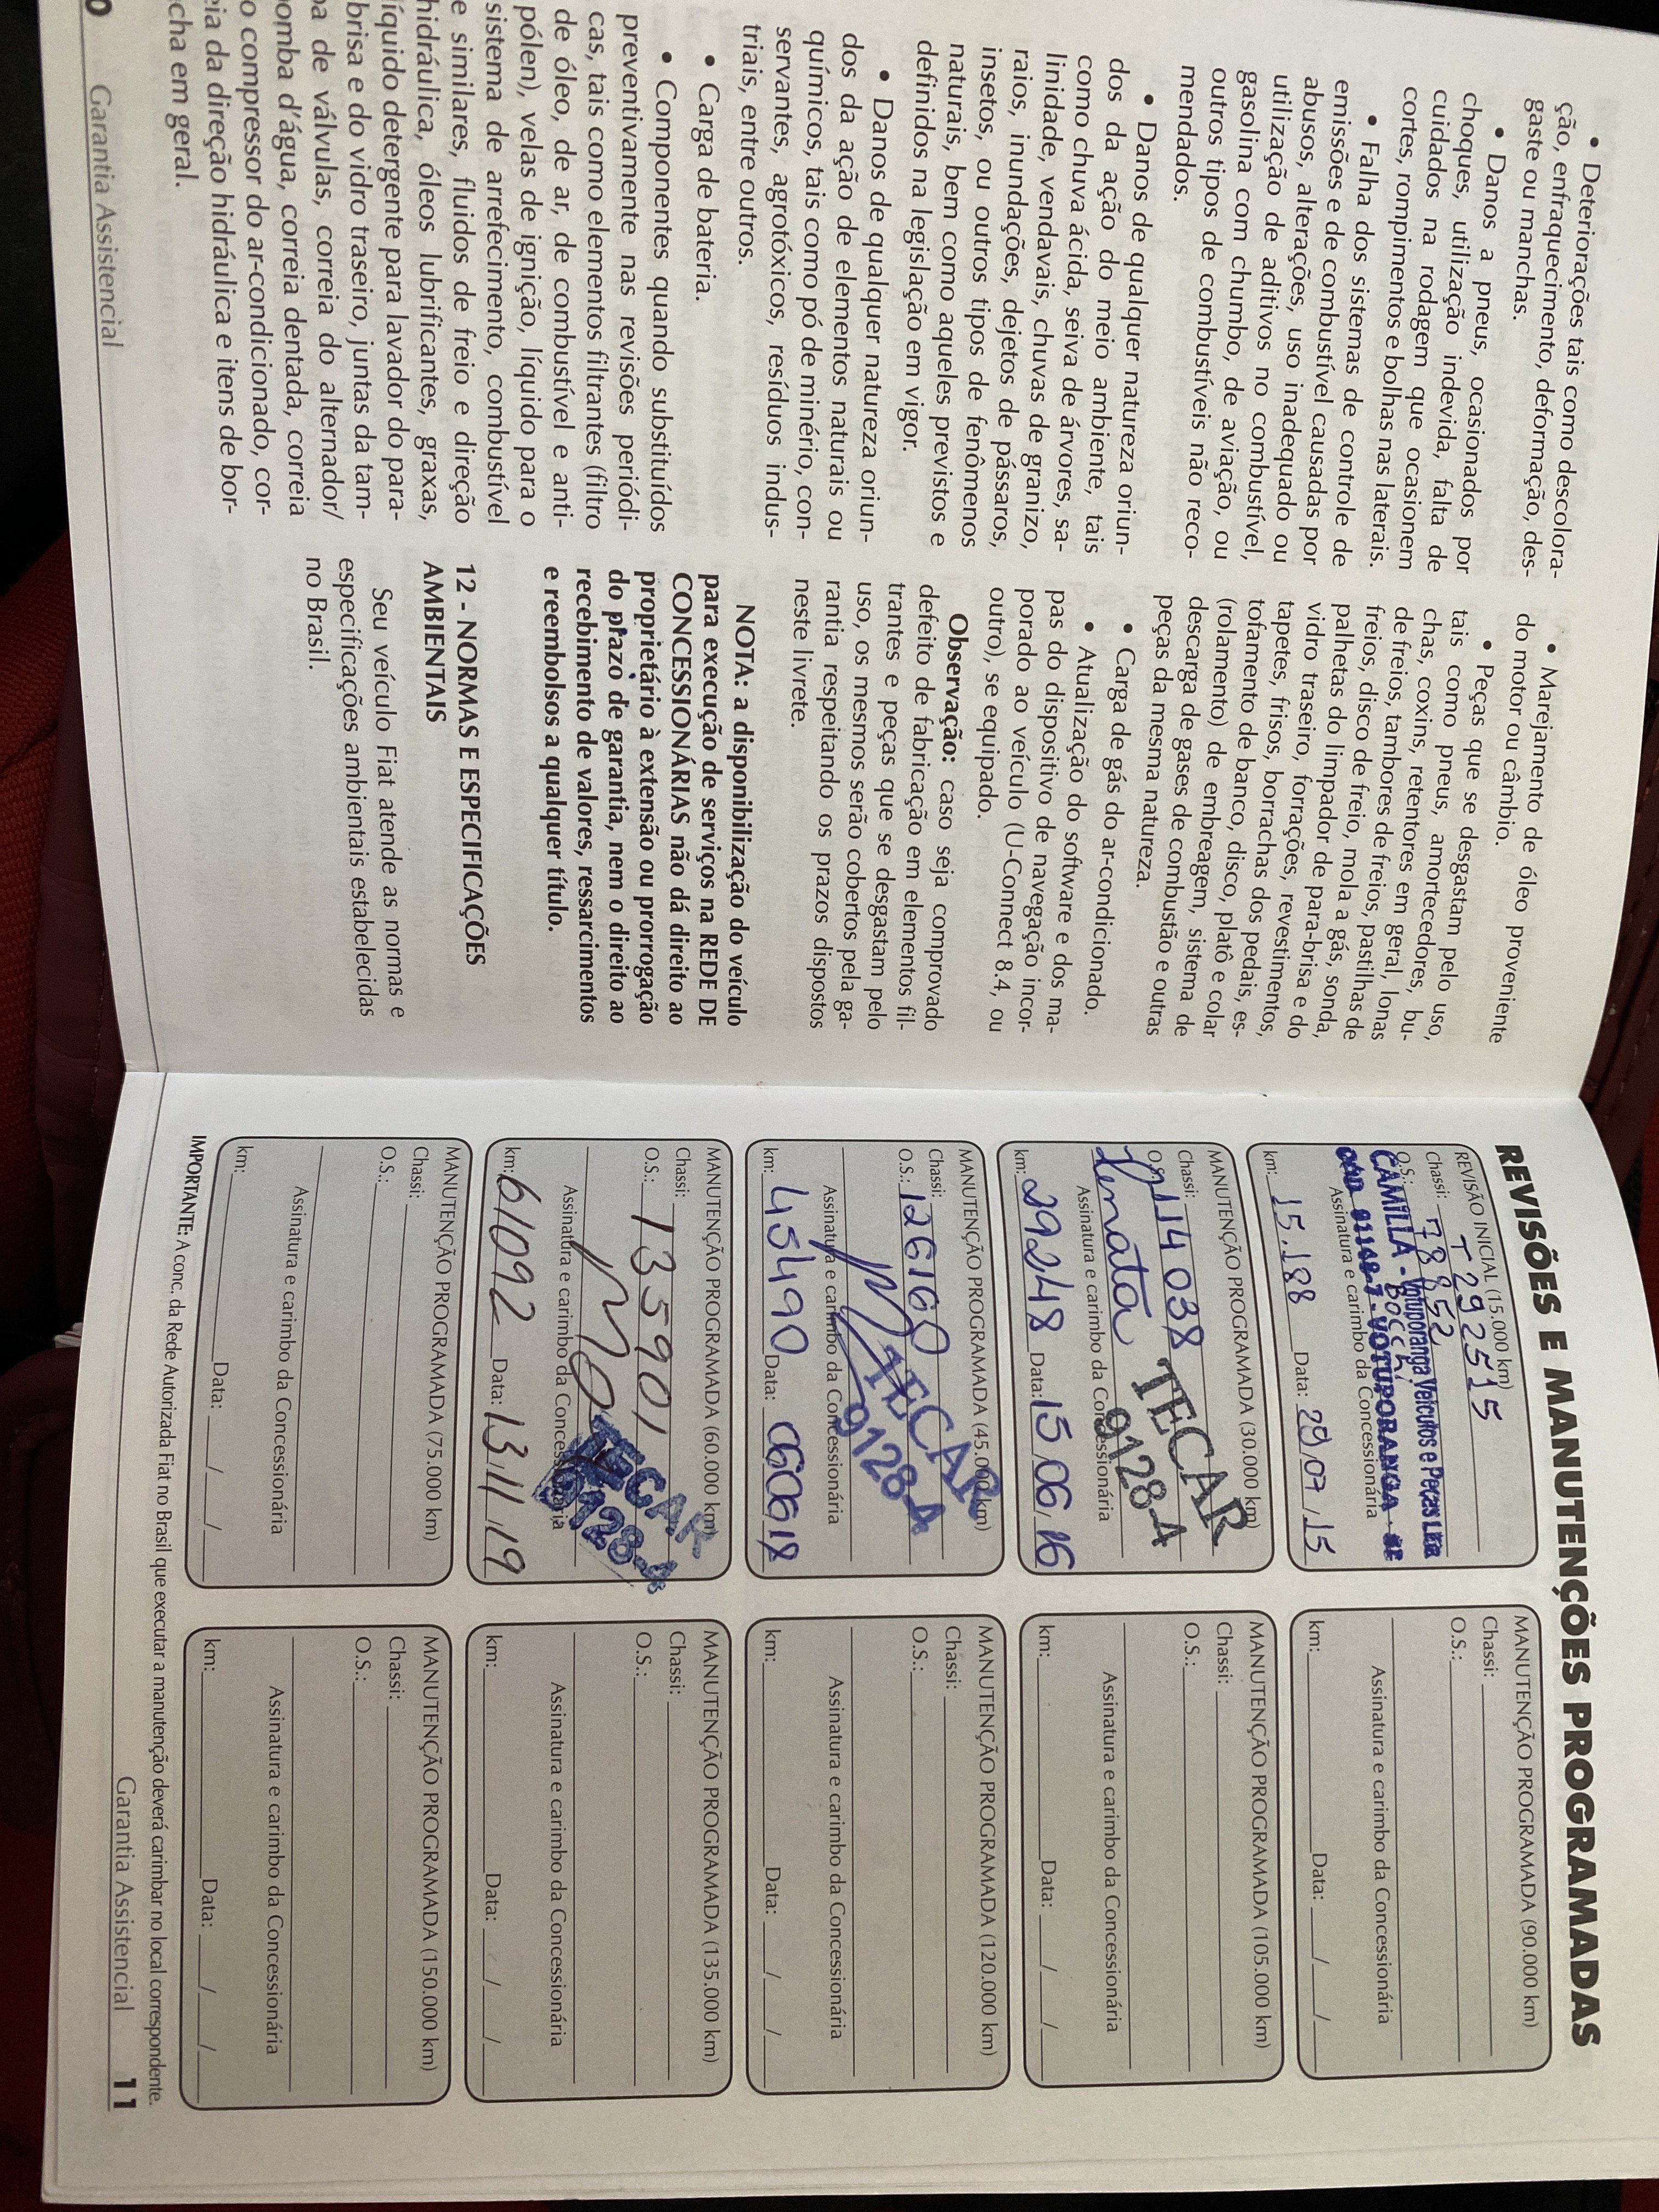 • Deteriorações tais como descolora-
ção, enfraquecimento, deformação, des-
gaste ou manchas.
• Danos a pneus, ocasionados por
choques, utilização indevida, falta de
cuidados na rodagem que ocasionem
cortes, rompimentos e bolhas nas laterais.
• Falha dos sistemas de controle de
emissões e de combustível causadas por
abusos, alterações, uso inadequado ou
utilização de aditivos no combustível,
gasolina com chumbo, de aviação, ou
outros tipos de combustíveis não reco-
mendados.
• Danos de qualquer natureza oriun-
dos da ação do meio ambiente, tais
como chuva ácida, seiva de árvores, sa-
linidade, vendavais, chuvas de granizo,
raios, inundações, dejetos de pássaros,
insetos, ou outros tipos de fenômenos
naturais, bem como aqueles previstos e
definidos na legislação em vigor.
• Danos de qualquer natureza oriun-
dos da ação de elementos naturais ou
químicos, tais como pó de minério, con-
servantes, agrotóxicos, resíduos indus-
triais, entre outros.
• Carga de bateria.
• Componentes quando substituídos
preventivamente nas revisões periódi-
cas, tais como elementos filtrantes (filtro
de óleo, de ar, de combustível e anti-
pólen), velas de ignição, líquido para o
sistema de arrefecimento, combustível
e similares, fluidos de freio e direção
hidráulica, óleos lubrificantes, graxas,
líquido detergente para lavador do para-
brisa e do vidro traseiro, juntas da tam-
pa de válvulas, correia do alternador/
bomba d'água, correia dentada, correia
o compressor do ar-condicionado, cor-
eia da direção hidráulica e itens de bor-
cha em geral.
0 Garantia Assistencial
• Marejamento de óleo proveniente
do motor ou câmbio.
• Peças que se desgastam pelo uso,
tais como pneus, amortecedores, bu-
chas, coxins, retentores em geral, lonas
de freios, tambores de freios, pastilhas de
freios, disco de freio, mola a gás, sonda,
palhetas do limpador de para-brisa e do
vidro traseiro, forrações, revestimentos,
tapetes, frisos, borrachas dos pedais, es-
tofamento de banco, disco, platô e colar
(rolamento) de embreagem, sistema de
descarga de gases de combustão e outras
peças da mesma natureza.
• Carga de gás do ar-condicionado.
• Atualização do software e dos ma-
pas do dispositivo de navegação incor-
porado ao veículo (U-Connect 8.4, ou
outro), se equipado.
Observação: caso seja comprovado
defeito de fabricação em elementos fil-
trantes e peças que se desgastam pelo
uso, os mesmos serão cobertos pela ga-
rantia respeitando os prazos dispostos
neste livrete.
NOTA: a disponibilização do veículo
para execução de serviços na REDE DE
CONCESSIONÁRIAS não dá direito ao
proprietário à extensão ou prorrogação
do prazo de garantia, nem o direito ao
recebimento de valores, ressarcimentos
e reembolsos a qualquer título.
12 - NORMAS E ESPECIFICAÇÕES
AMBIENTAIS
Seu veículo Fiat atende as normas e
especificações ambientais estabelecidas
no Brasil.
REVISÕES E MANUTENÇÕES PROGRAMADAS
REVISÃO INICIAL (15.000 km)
Chassi: T292515
O.S.: 78852
CAMILLA - Votuporanga Veículos e Peças Ltda
VOTUPORANGA
Assinatura e carimbo da Concessionária
km: 15.188 Data: 29/07/15
MANUTENÇÃO PROGRAMADA (30.000 km)
Chassi:
O.S.: 114038
Renata
TECAR
9128-4
Assinatura e carimbo da Concessionária
km: 29248 Data: 15/06/16
MANUTENÇÃO PROGRAMADA (45.000 km)
Chassi:
O.S.: 126160
TECAR
9128-4
Assinatura e carimbo da Concessionária
km: 45490 Data: 060618
MANUTENÇÃO PROGRAMADA (60.000 km)
Chassi:
O.S.: 135901
TECAR
9128-4
Assinatura e carimbo da Concessionária
km: 61092 Data: 13/11/19
MANUTENÇÃO PROGRAMADA (75.000 km)
Chassi:
O.S.:
Assinatura e carimbo da Concessionária
km: Data: / /
MANUTENÇÃO PROGRAMADA (90.000 km)
Chassi:
O.S.:
Assinatura e carimbo da Concessionária
km: Data: / /
MANUTENÇÃO PROGRAMADA (105.000 km)
Chassi:
O.S.:
Assinatura e carimbo da Concessionária
km: Data: / /
MANUTENÇÃO PROGRAMADA (120.000 km)
Chassi:
O.S.:
Assinatura e carimbo da Concessionária
km: Data: / /
MANUTENÇÃO PROGRAMADA (135.000 km)
Chassi:
O.S.:
Assinatura e carimbo da Concessionária
km: Data: / /
MANUTENÇÃO PROGRAMADA (150.000 km)
Chassi:
O.S.:
Assinatura e carimbo da Concessionária
km: Data: / /
IMPORTANTE: A conc. da Rede Autorizada Fiat no Brasil que executar a manutenção deverá carimbar no local correspondente.
Garantia Assistencial 11